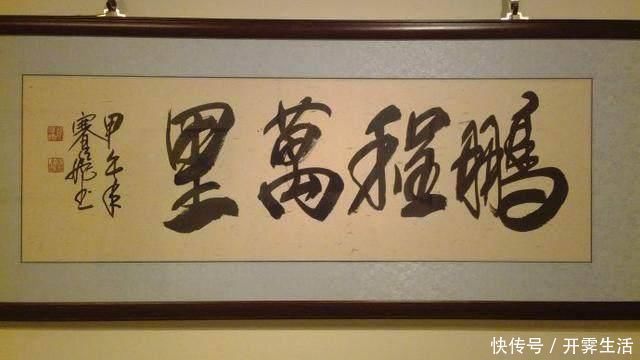 鵬程萬里
甲午年
賽书
快传号 / 开霁生活